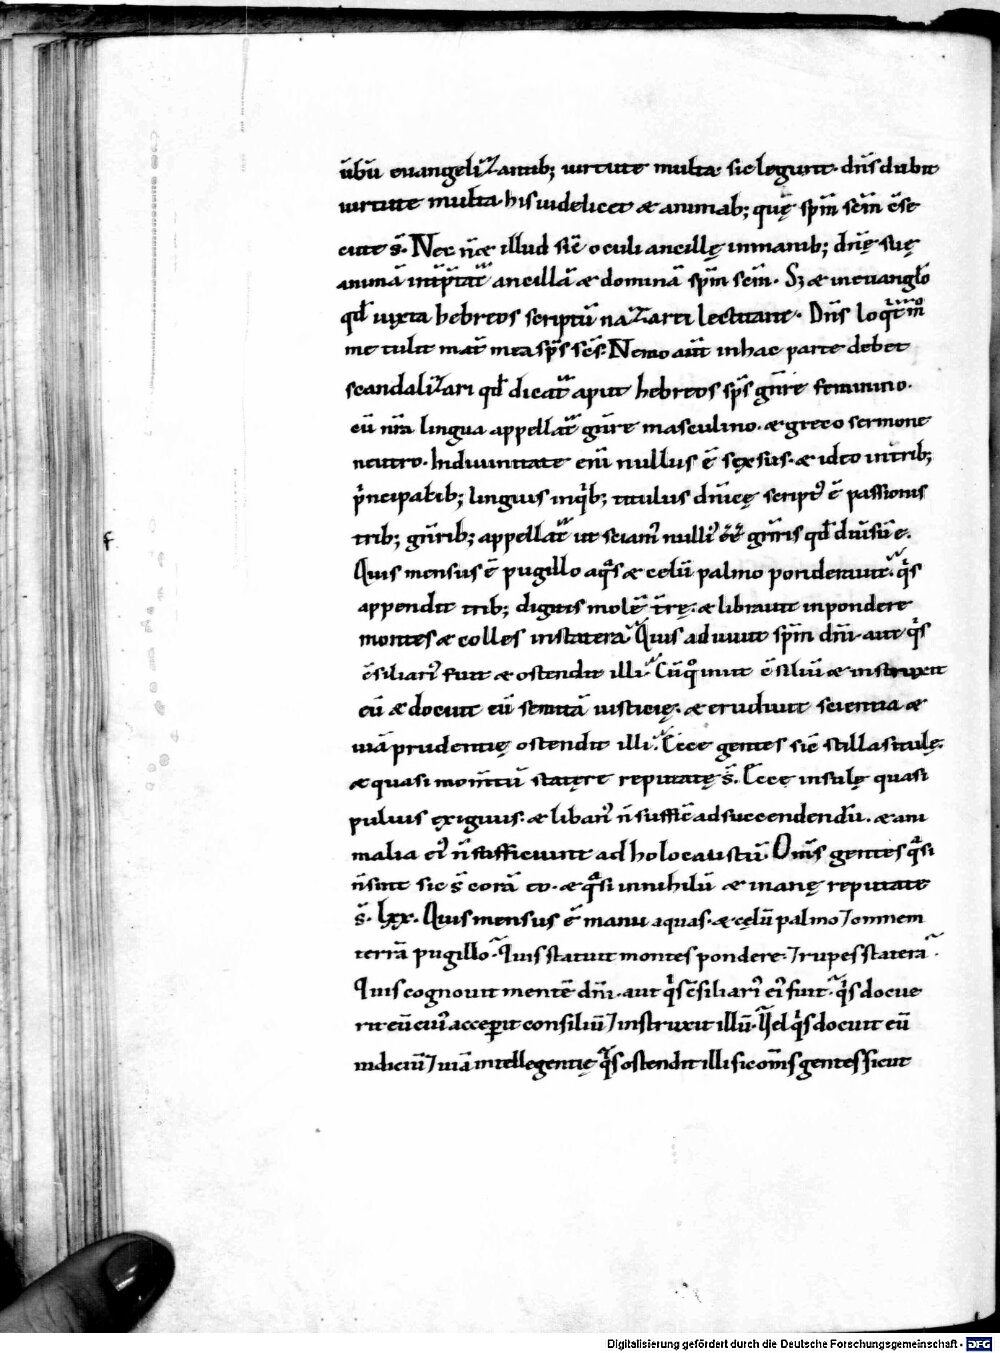 ũbũ euangelizantib; uirtute multa sic legunt. dñs dabit
uirtute multa. his uidelicet & animab; quę spm̃ scm̃ c̃se
cute s̃. Nec ñ & illud sic̃ oculi ancillę in manib; dñę suę
animã int̃p̃tat̃ ancillã & dominã spm̃ scm̃. Sʒ & in euangło
qđ iuxta hebreos scriptũ nazarei lectitant. Dñs loqt̃
me tulit mat̃ mea sp̃s sc̃s. Nemo aũt in hac parte debet
scandalizari qđ dicat̃ aput hebreos sp̃s gñre feminino.
cũ nr̃a lingua appellat̃ gñre masculino. & greco sermone
neutro. In diuinitate eni͂ nullus ẽ sexsus. & ideo in trib;
p̃ncipalib; linguis inq̃b; titulus dñicę script' ẽ passionis
trib; gñrib; appellat̃ ut sciam' nulli' ẽẽ gñris qđ diũsũ e.
Quis mensus ẽ pugillo aq̃s & celũ palmo ponderauit. q̃s
appendit trib; digitis molẽ t̃rę. & librauit in pondere
montes & colles in statera Quis adiuuit spm̃ dñi. aut q̃s
c̃siliari' fuit & ostendit illi. Cũ q̊ iniit c̃siliũ & instruxit
eũ & docuit eũ semitã iusticię. & erudiuit scientia &
uiã prudentię ostendit illi. Ecce gentes sic̃ stilla situlę.
& quasi mom̃tũ statęre reputatę s̃. Ecce insulę quasi
puluis exiguus. & liban' ñ suffic̃ ad succendendũ. & ani
malia ei' ñ sufficiunt ad holocaustũ. Om̃s gentes q̃si
ñ sint sic s̃ corã eo. & q̃si in nihilũ & inanę reputate
s̃. lxx. Quis mensus ẽ manu aquas. & cęlũ palmo ⁊ omnem
terrã pugillo. Quis statuit montes pondere. ⁊ rupes statera.
Quis cognouit mentẽ dñi. aut q̃s c̃siliari' ei' fuit. q̃s docue
rit eũ cui' acceperit consiliũ ⁊ instruxit illũ. Vel q̃s docuit eũ
iudiciũ ⁊ uiã intellegentię q̃s ostendit illi si om̃s gentes sicut
Digitalisierung gefördert durch die Deutsche Forschungsgemeinschaft - DFG